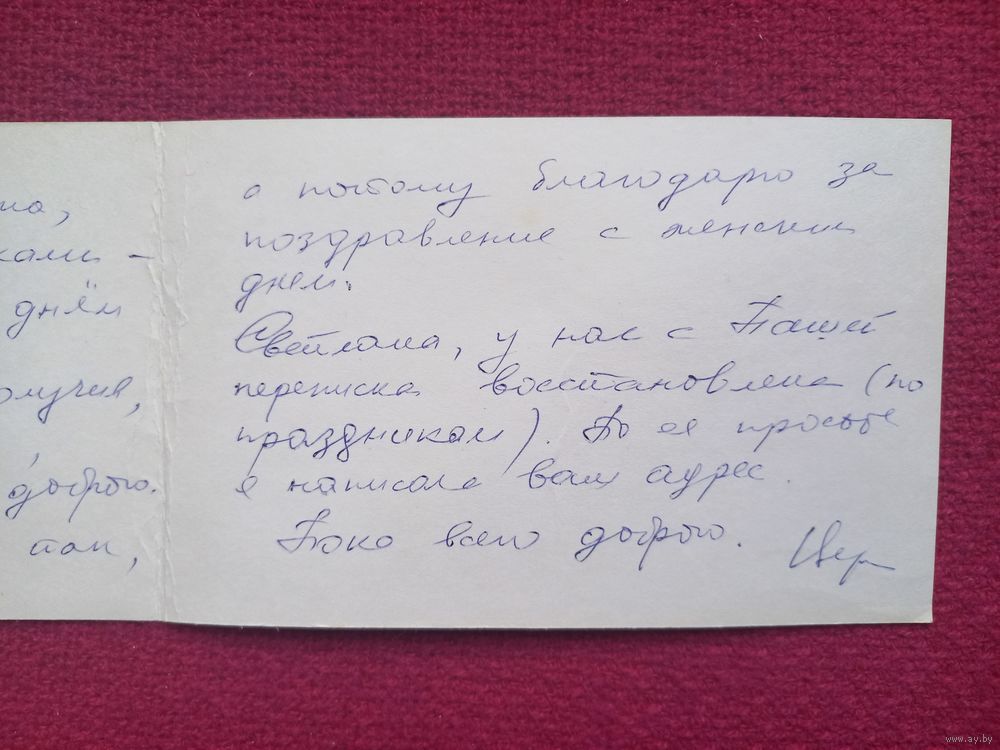 на,
ками -
днём
олучив,
доброго.
так,
а потому благодарю за
поздравление с женским
днем.
Светлана, у нас с Пашей
переписка восстановлена (по
праздникам). По ее просьбе
я написала вам адрес.
Пока всего доброго.
www.ay.by